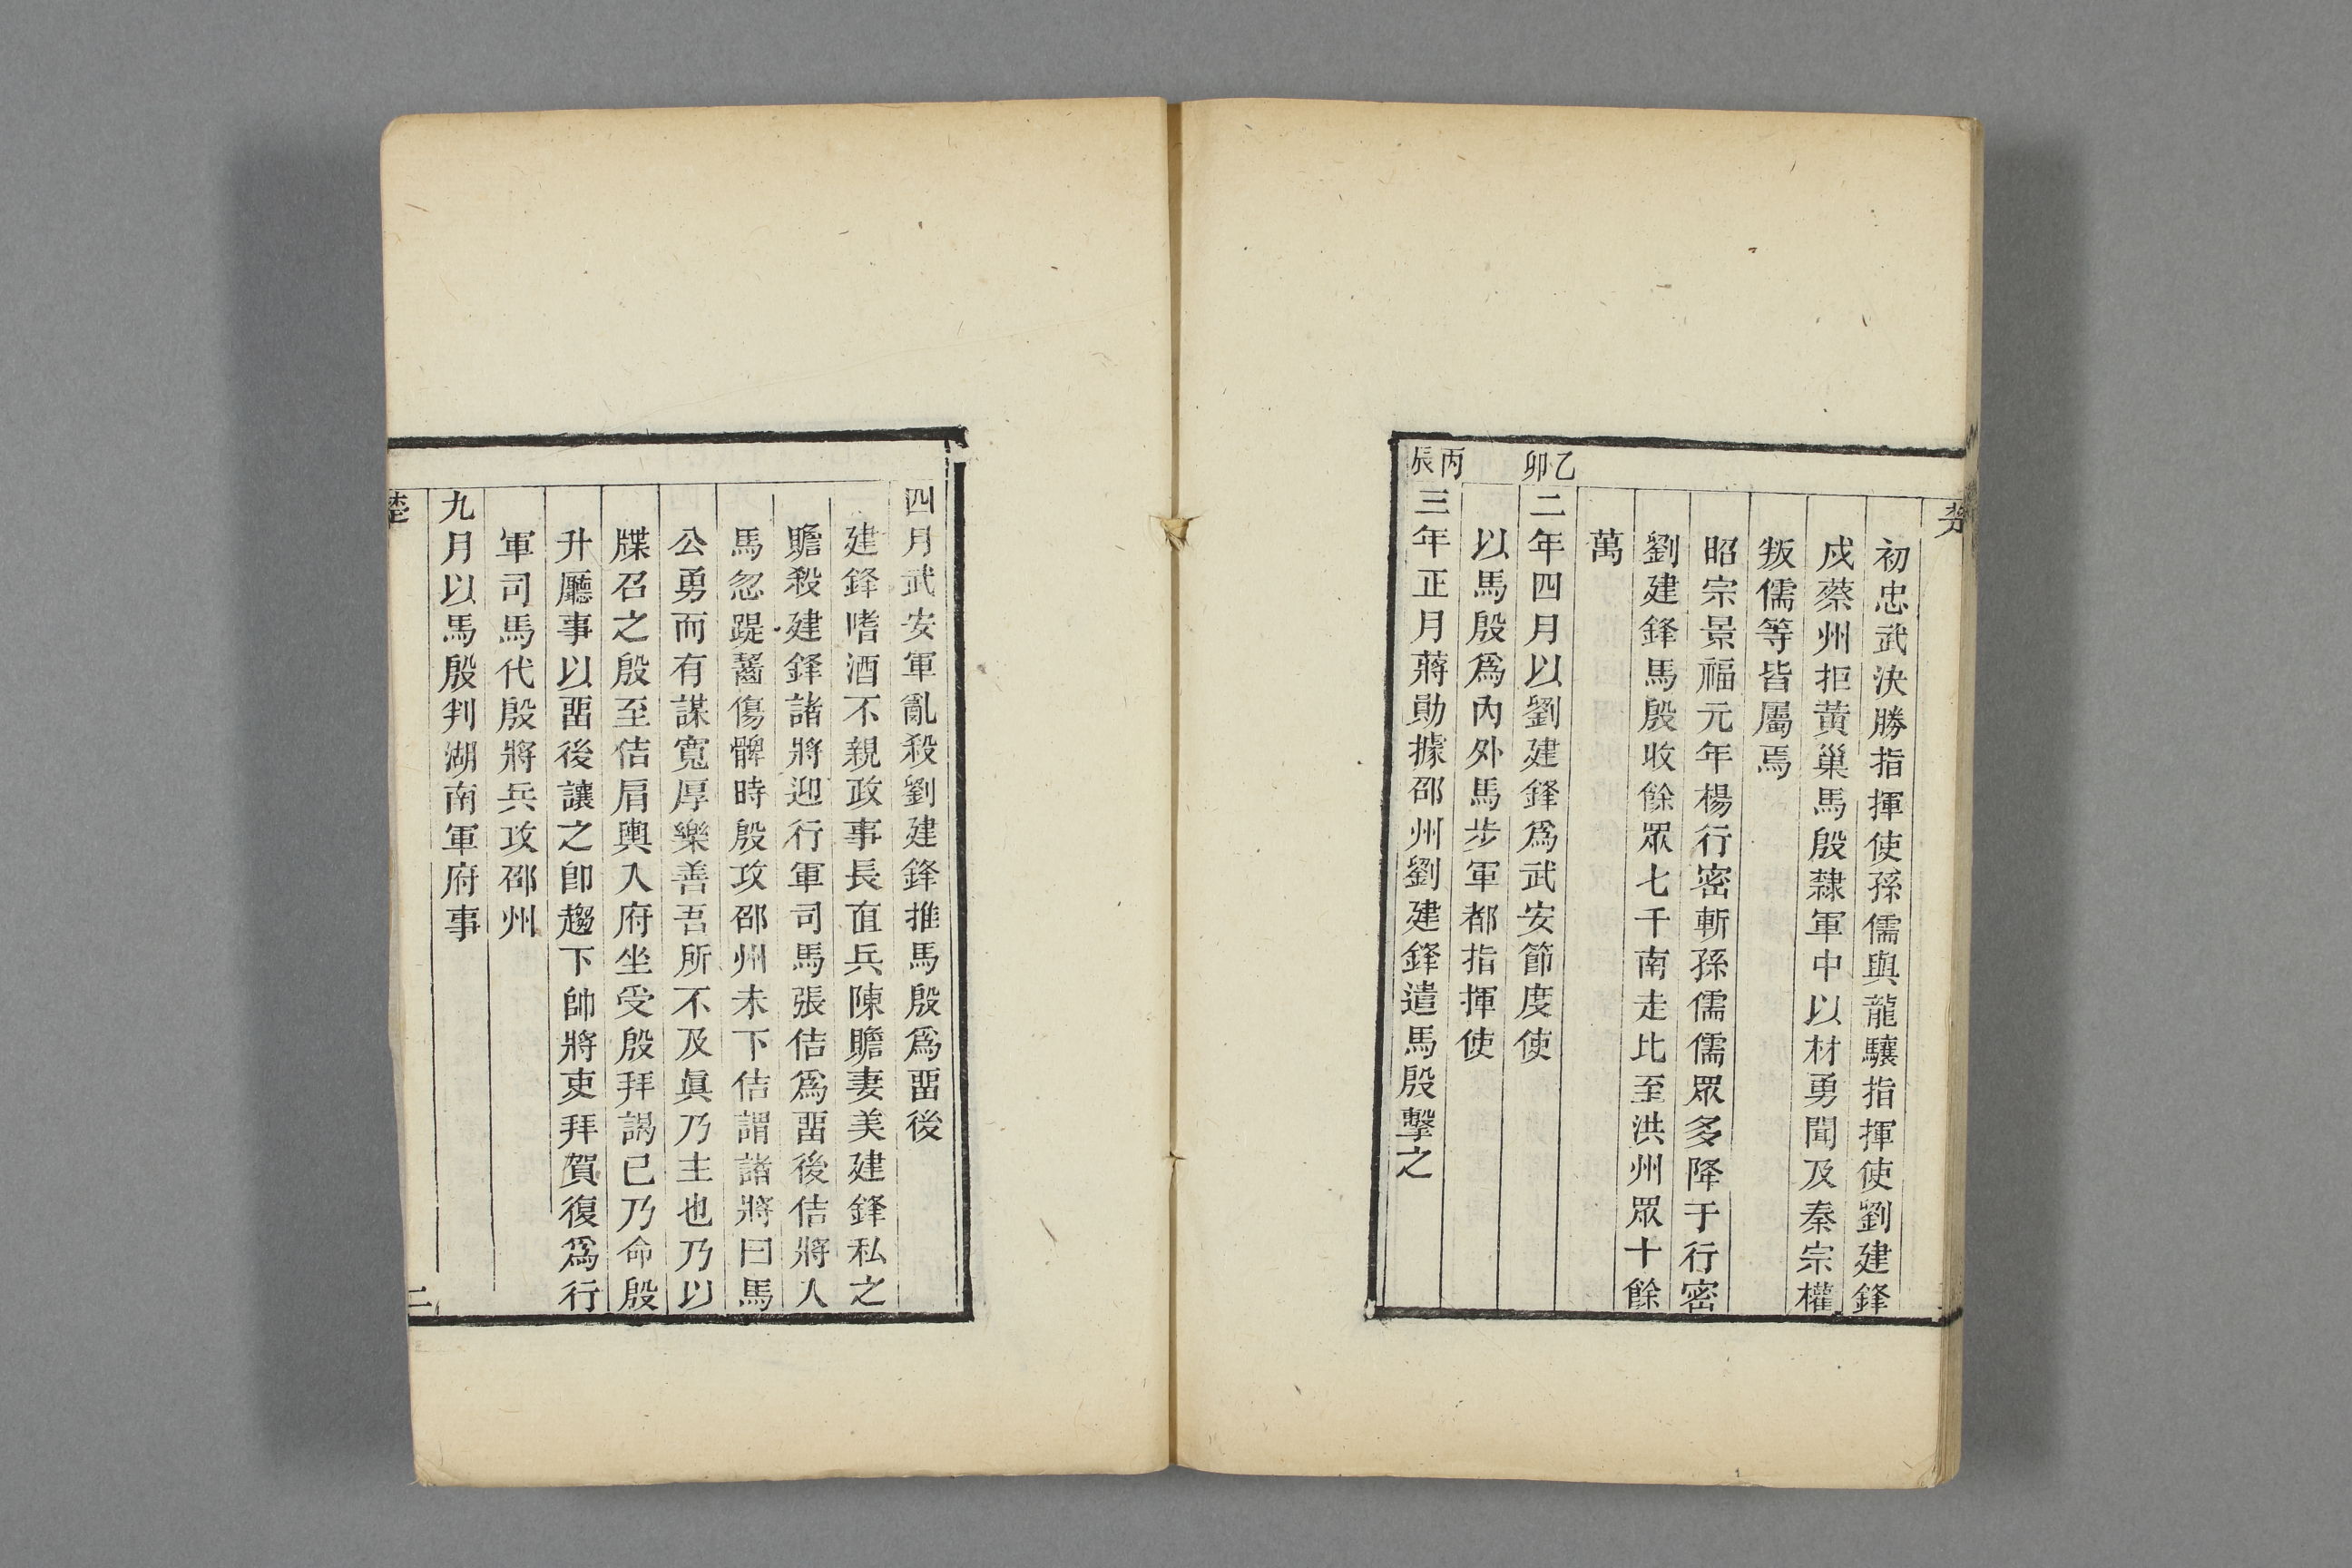 初忠武決勝指揮使孫儒與龍驤指揮使劉建鋒
戍蔡州拒黃巢馬殷隸軍中以材勇聞及秦宗權
叛儒等皆屬焉
昭宗景福元年楊行密斬孫儒儒眾多降于行密
劉建鋒馬殷收餘眾七千南走比至洪州眾十餘
萬
乙卯
二年四月以劉建鋒爲武安節度使
以馬殷爲內外馬步軍都指揮使
丙辰
三年正月蔣勛據邵州劉建鋒遣馬殷擊之
四月武安軍亂殺劉建鋒推馬殷爲畱後
建鋒嗜酒不親政事長直兵陳贍妻美建鋒私之
贍殺建鋒諸將迎行軍司馬張佶爲畱後佶將人
馬忽踶齧傷髀時殷攻邵州未下佶謂諸將曰馬
公勇而有謀寬厚樂善吾所不及眞乃主也乃以
牒召之殷至佶肩輿入府坐受殷拜謁已乃命殷
升廳事以畱後讓之卽趨下帥將吏拜賀復爲行
軍司馬代殷將兵攻邵州
九月以馬殷判湖南軍府事
楚
二